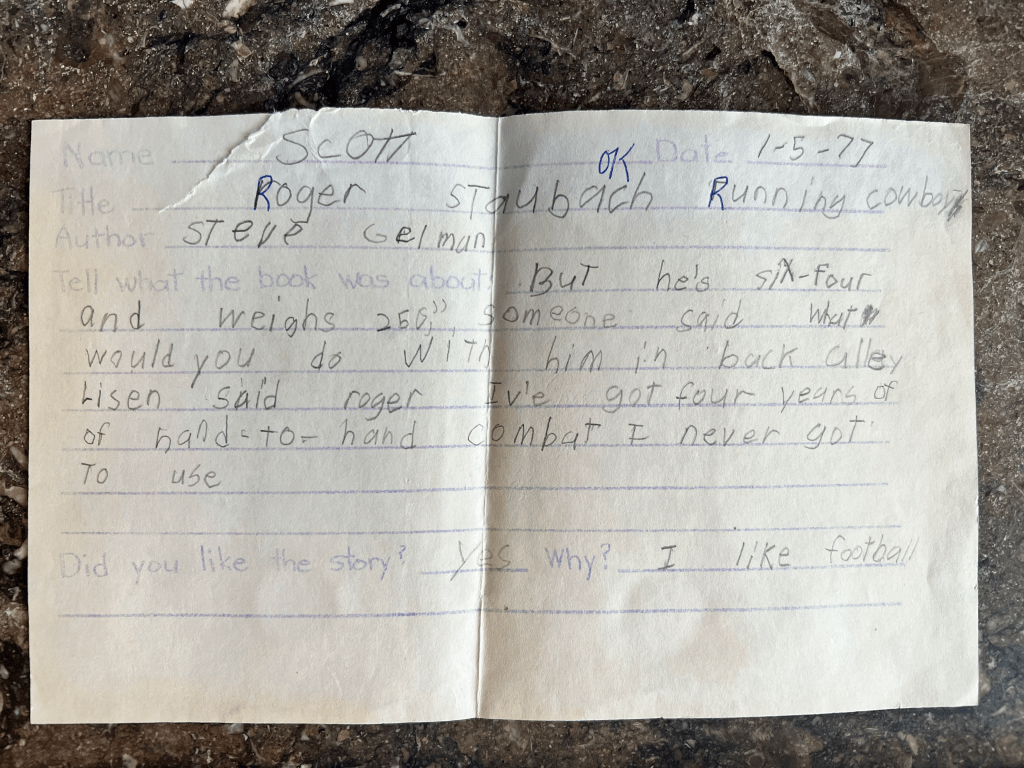 Name Scott OK Date 1-5-77
Title Roger Staubach Running cowboy
Author Steve Gelman
Tell what the book was about: But he's six-four
and weighs 250,", someone said what
would you do with him in back alley
Lisen said roger Iv'e got four years of
of hand-to-hand combat I never got
To use
Did you like the story? yes Why? I like football